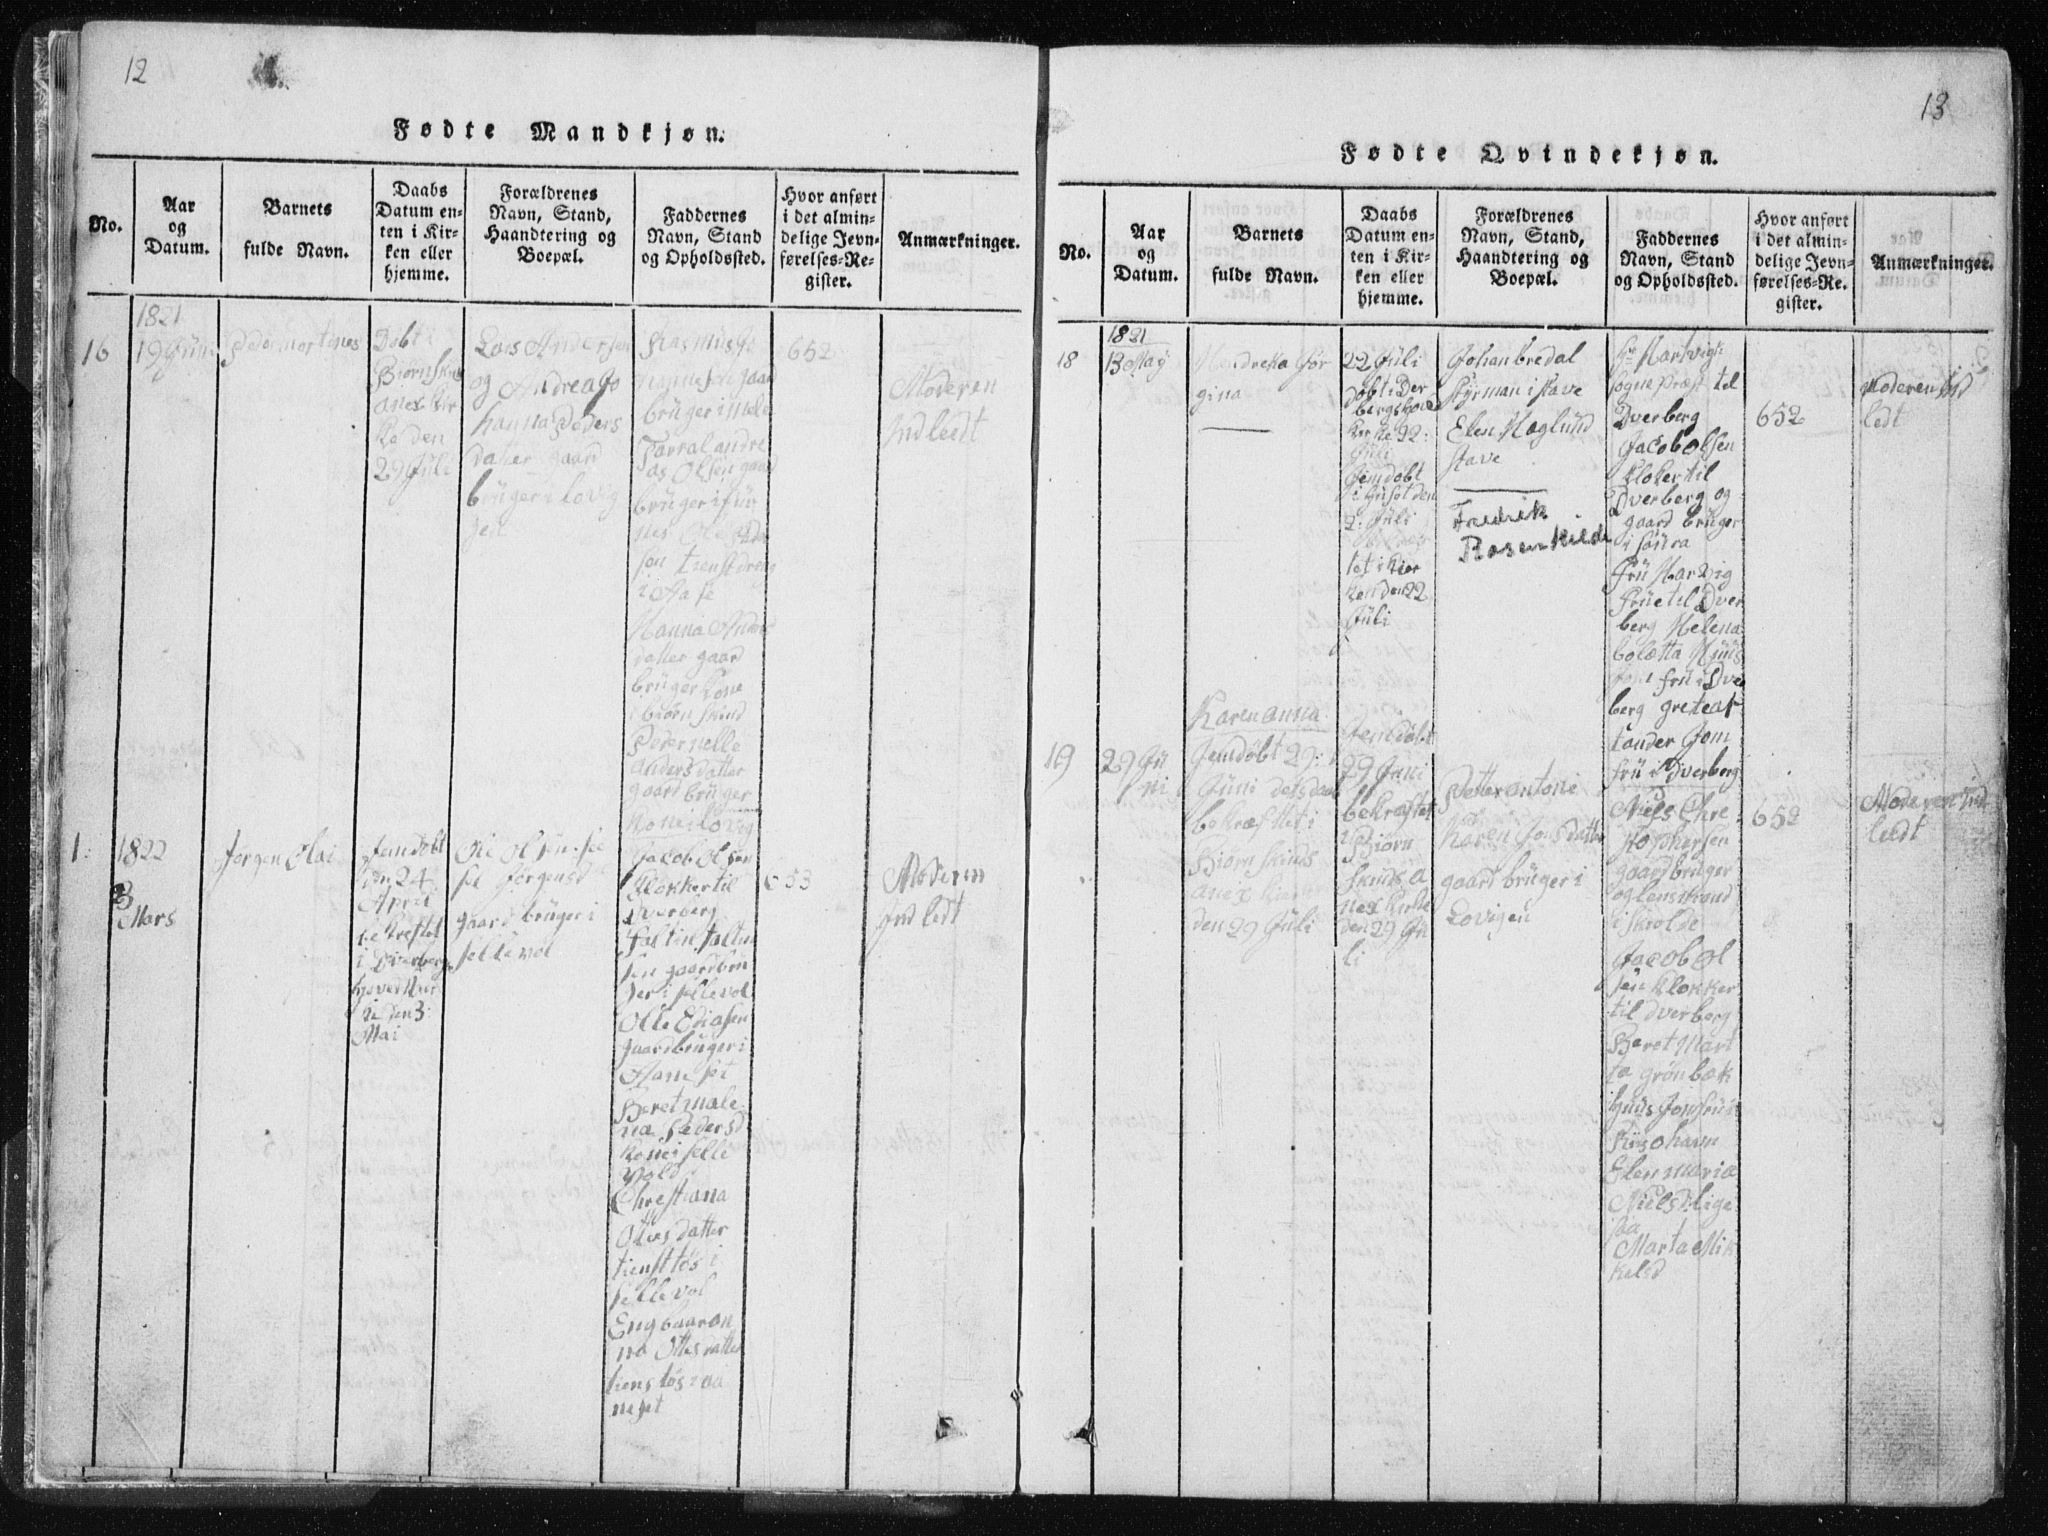 12
Fødte Mandkjøn.
No.
Aar
og
Datum.
Barnets
fulde Navn.
Daabs
Datum en-
ten i Kir-
ken eller
hjemme.
Forældrenes
Navn, Stand,
Haandtering og
Boepæl.
Faddernes
Navn, Stand
og Opholdssted.
Hvor anført
i det almin-
delige Jevn-
førelses-Re-
gister.
Anmærkninger.
16
1821
19 Juni
Pedermortines
Døbt i
Biørnskins
anex kir
ke den
29 Juli
Lars Andersen
og Andrea Jo
hanna Peders
datter gaard
brüger i Lovig
jen
Rasmus Jo
hannesen gaard
brüger i mele
andre
as Olsen gaard
brüger i
nes Ole
søn tienstdreng
i Aase
Hanna Anders
datter gaard
brüger kone
i biørnskind
Pedernelle
andersdatter
gaard brüger
kone i Lovig
652
Moderen
Indleedt
1:
1822
3
Mars
Jørgen Olai
Jemdøbt
den 24
April
bekreftet
i Dverberg
hovedkir
ke den 3:
Mai
Ole Olsen
Jørgensd
gaard brüger i
sellevol
Jacob Olsen
klokker til
Dverberg
faltin faltin
sen gaardbrü
ger i sellevol
Olle Ediasen
gaardbrüger i
Aaneset
Beret male
na Pedersd
kone i selle
vold
Chrestiana
Ottesdatter
tiensttøs i
sellevol
Engbaaron
na Ottesdatter
tienstøs i aa
neset
653
Moderen
Indledt
13
Fødte Qvindekjøn.
No.
Aar
og
Datum.
Barnets
fulde Navn.
Daabs
Datum en-
ten i Kir-
ken eller
hjemme.
Forældrenes
Navn, Stand,
Haandtering og
Boepæl.
Faddernes
Navn, Stand
og Opholdssted.
Hvor anført
i det almin-
delige Jevn-
førelses-Re-
gister.
Anmærkninger.
18
1821
13 May
Hendreka Jør
gina
22 Juli
døbt i Dver
bergs hoved
kirke 22:
Juli
Jemdøbt
i Huset den
2: Juli
bekræf
tet i kier
ken den 22
Juli
Johan bredal
styrman i stave
Elen Haglund
stave
Fredrik
Rosenkilde
Hr Hartvigs
sogne Præst til
Dverberg
Jacob Olsen
kloker til
Dverberg og
gaard brüger
i
frü Harvig
früe til Dver
berg Helena
boletta Hjüs
Jom frü i Dver
berg grete
tander Jom
frü i Dverberg
652
Moderen Ind
ledt
19
29 Jü
ni
Karen anna
Jemdøbt 29:
Jüni
bekræftet i
Bjørnskinds
anex kierke
den 29 Juli
Jemdøbt
29 Juni
bekræftet
i Biørn
skinds a
nex kirke
den 29 Jü
li
Petter antoni
Karen Jonsdatter
gaard brüger i
Lovigen
Niels Chre
stophersen
gaardbrüger
og lensmand
i skrolde
Jacob ol
sen klokker
til dverberg
Beret mart
ta grønbæk
hüüs Jomfrü i
Riisøhavn
Elen maria
Nielsd lige
saa
Marta Mik
kelsd
652
Moderen Ind
ledt